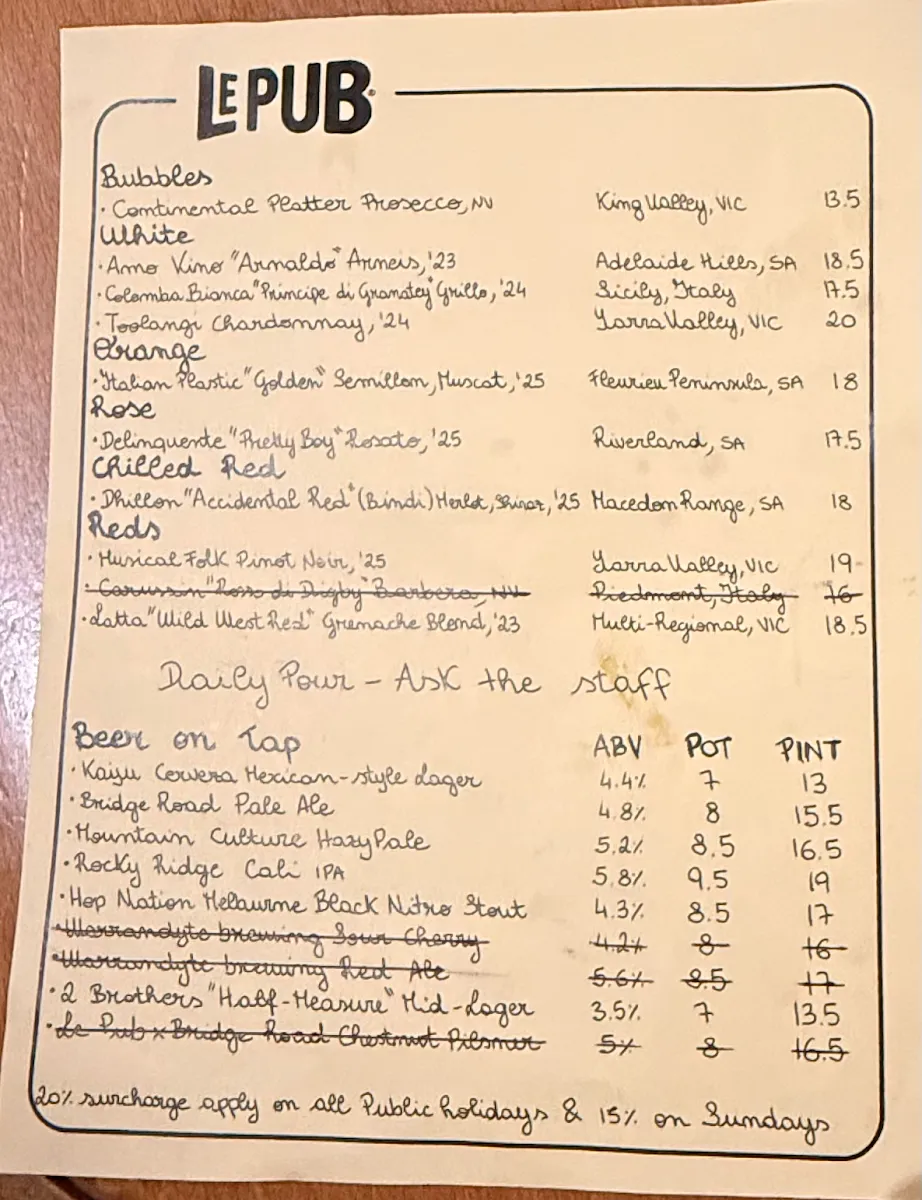 LE PUB
Bubbles
· Continental Platter Prosecco, NV King Valley, VIC 13.5
White
· Amo Vino "Arnaldo" Arneis, '23 Adelaide Hills, SA 18.5
· Colomba Bianca "Principe di Granatey" Grillo, '24 Sicily, Italy 17.5
· Toolangi Chardonnay, '24 Yarra Valley, VIC 20
Orange
· Italian Plastic "Golden" Semillon, Muscat, '25 Fleurieu Peninsula, SA 18
Rose
· Delinquente "Pretty Boy" Rosato, '25 Riverland, SA 17.5
Chilled Red
· Dhillon "Accidental Red" (Bindi) Merlot, Shiraz, '25 Macedon Range, SA 18
Reds
· Musical Folk Pinot Noir, '25 Yarra Valley, VIC 19
· Carussin "Rosso di Digby" Barbera, NV Piedmont, Italy 16
· Latta "Wild West Red" Grenache Blend, '23 Multi-Regional, VIC 18.5
Daily Pour - Ask the staff
Beer on Tap ABV POT PINT
· Kaiju Cervera Mexican-style Lager 4.4% 7 13
· Bridge Road Pale Ale 4.8% 8 15.5
· Mountain Culture Hazy Pale 5.2% 8.5 16.5
· Rocky Ridge Cali IPA 5.8% 9.5 19
· Hop Nation Melbourne Black Nitro Stout 4.3% 8.5 17
· Warrandyte brewing Sour Cherry 4.2% 8 16
· Warrandyte brewing Red Ale 5.6% 8.5 17
· 2 Brothers "Half-Measure" Mid-Lager 3.5% 7 13.5
· Le Pub x Bridge Road Chestnut Pilsner 5% 8 16.5
20% surcharge apply on all Public holidays & 15% on Sundays